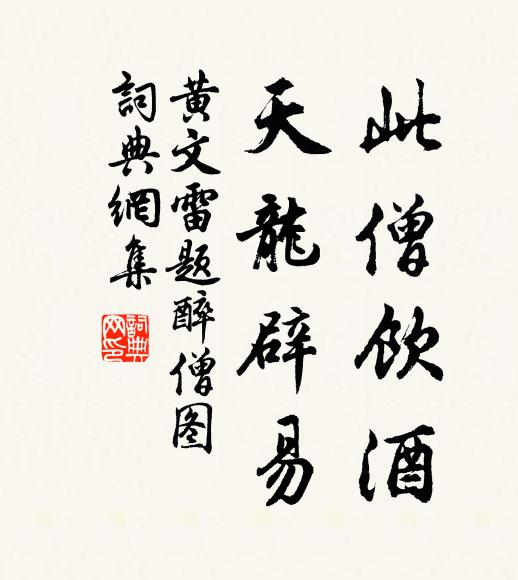 此僧飲酒
天龍辟易
黃文雷题醉僧图
詞典網集
詞典网印